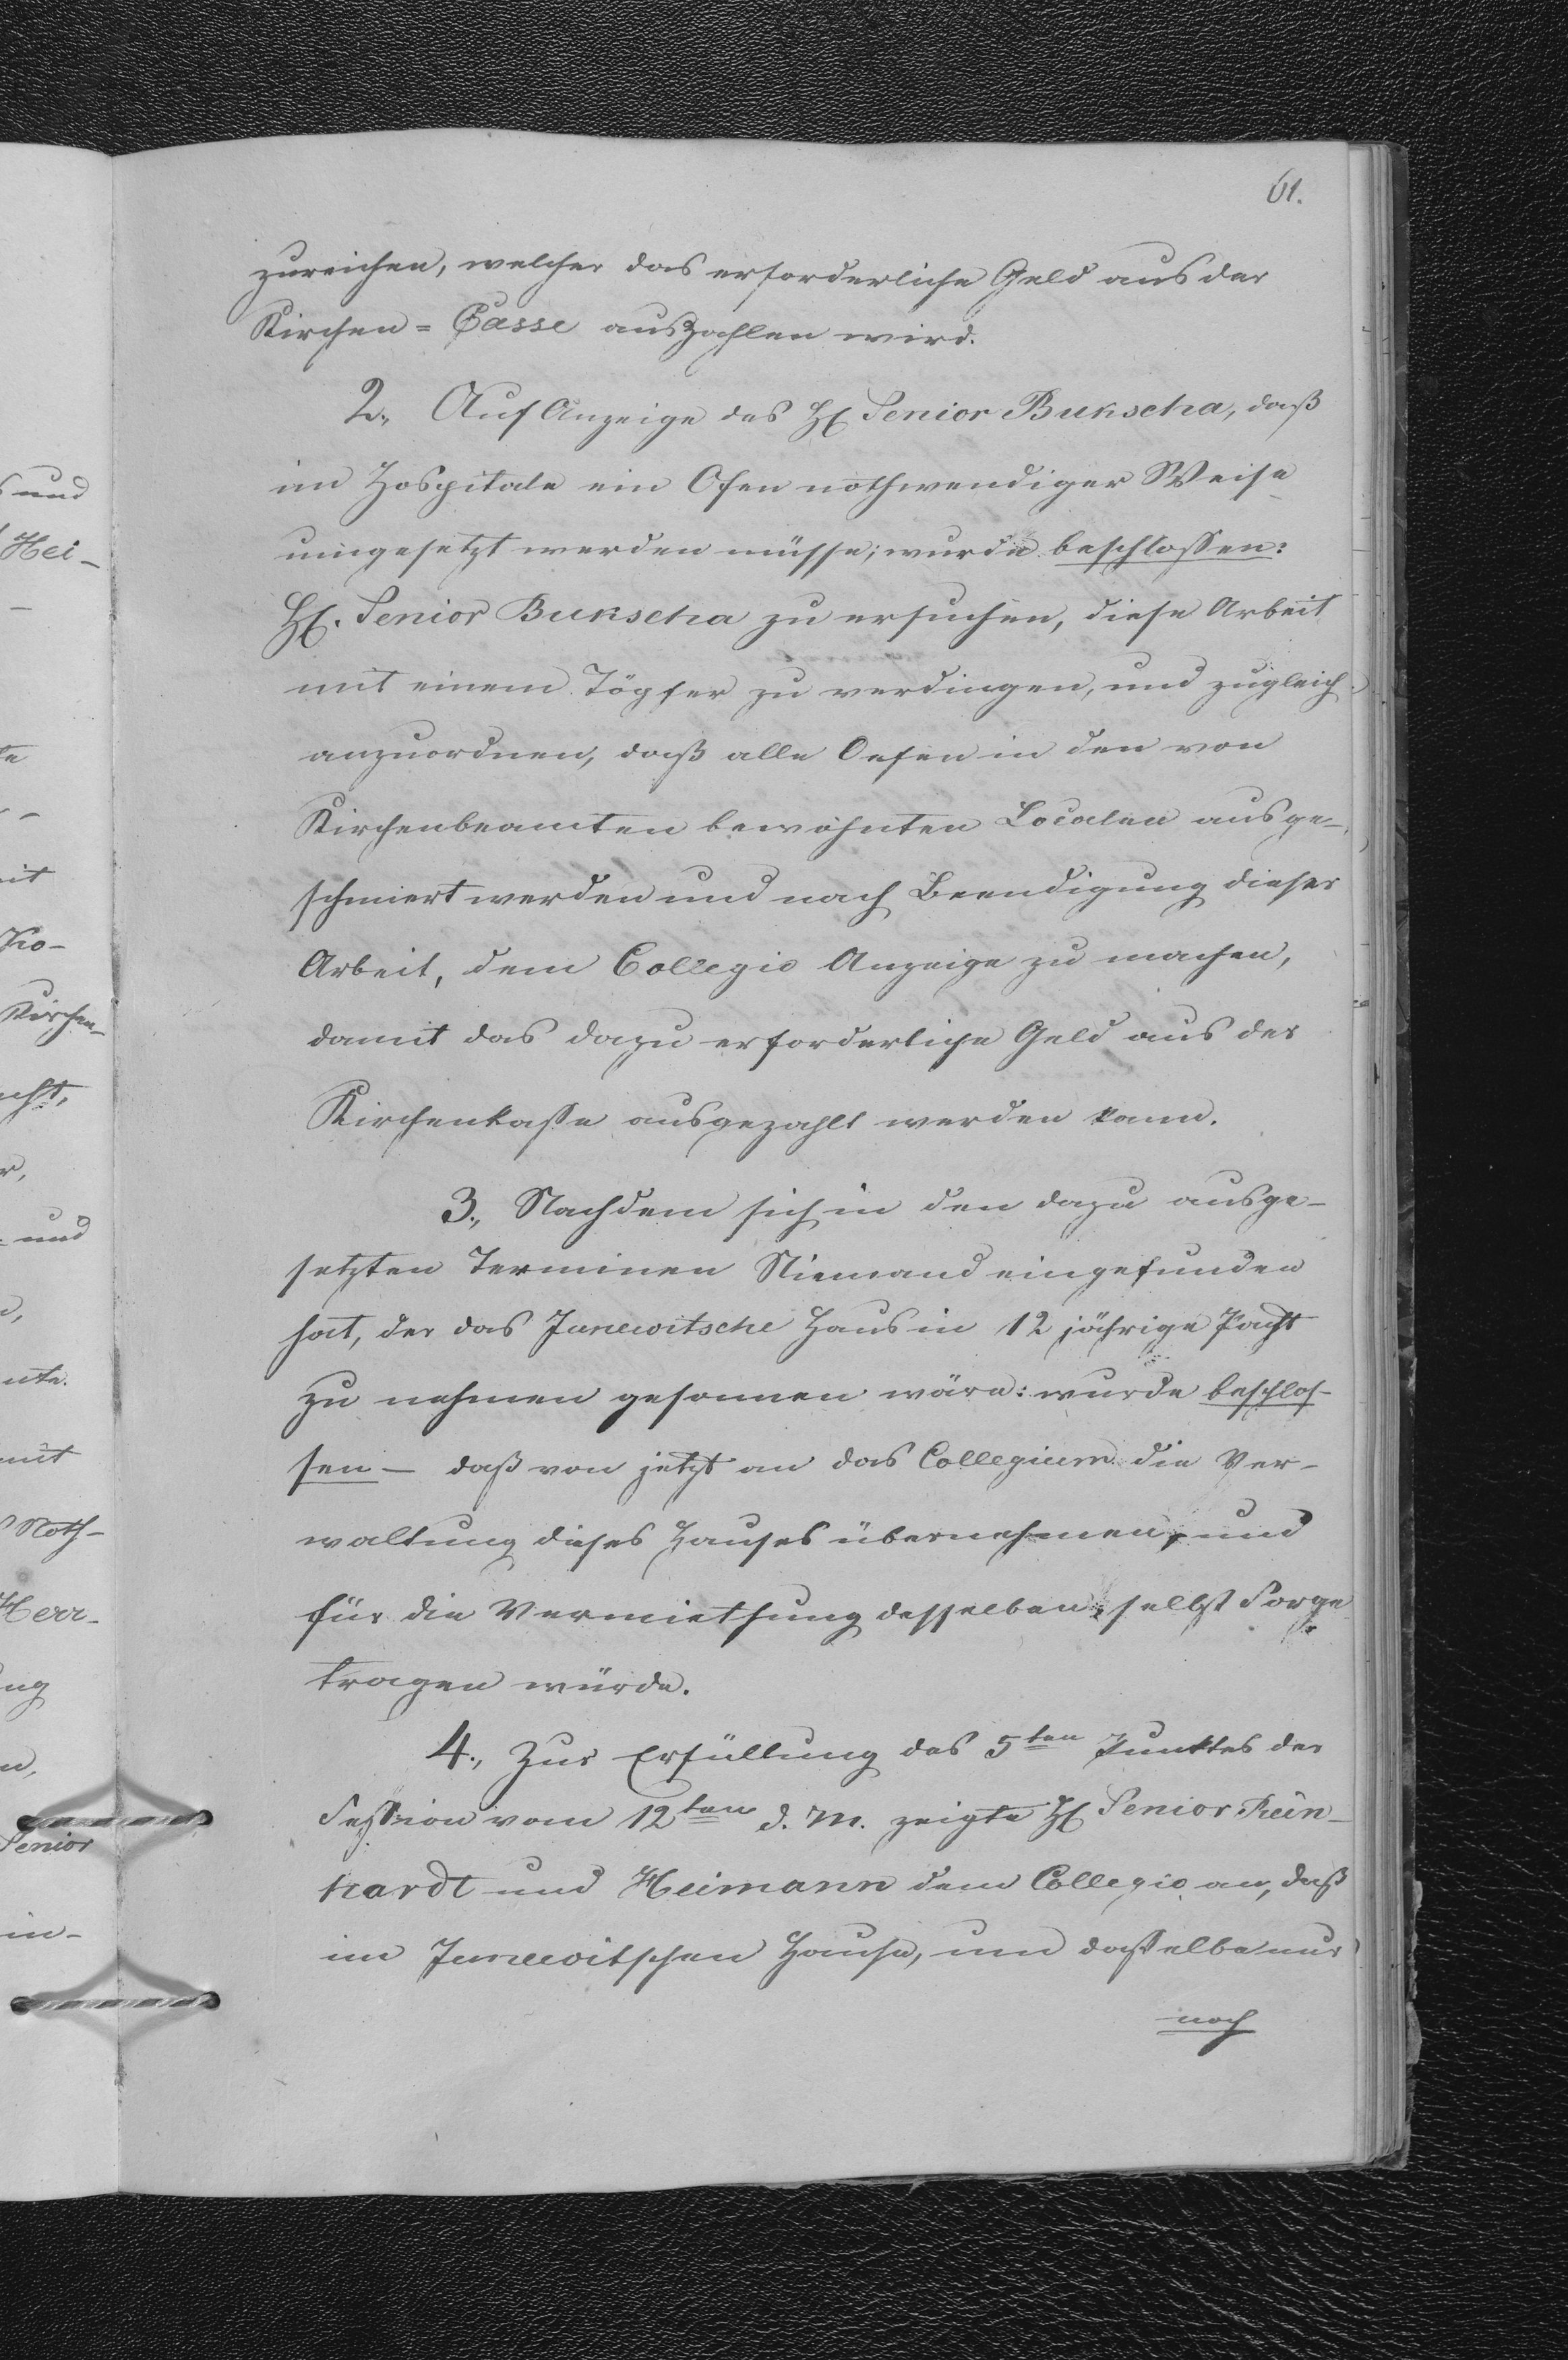 61.
zureichen, welcher das erforderliche Geld aus der
Kirchen = Casse auszahlen wird.
2., Auf Anzeige des H[err] Senior Bukscha, daß
im Hospitale ein Ofen nothwendiger Weise
umgesetzt werden müsse; wurde beschlossen:
H[err]. Senior Bukscha zu ersuchen, diese Arbeit
mit einem Töpfer zu verdingen, und zugleich
anzuordnen, daß alle Oefen in den von
Kirchenbeamten bewohnten Localen ausge-
schmiert werden und nach Beendigung dieser
Arbeit, dem Collegio Anzeige zu machen,
damit das dazu erforderliche Geld aus der
Kirchenkasse ausgezahlt werden kann.
3., Nachdem sich in den dazu ausge-
setzten Terminen Niemand eingefunden
hat, der das Junewitsche Haus in 12 jährige Pacht
zu nehmen gesonnen wäre: wurde beschlos-
sen - daß von jetzt an das Collegium die Ver-
waltung dieses Hauses übernehmen, und
für die Vermiethung desselben, selbst Sorge
tragen würde.
4., Zur Erfüllung des 5ten Punktes der
Session vom 12ten d. M. zeigte H[err] Senior Rein-
hardt und Heimann dem Collegio an, daß
im Junewitschen Hause, um dasselbe nur
noch
s und
Hei-
te
it
Ko-
Kirchen-
cht,
r,
und
mit
Noth-
Herr-
ng
n,
Senior
in-